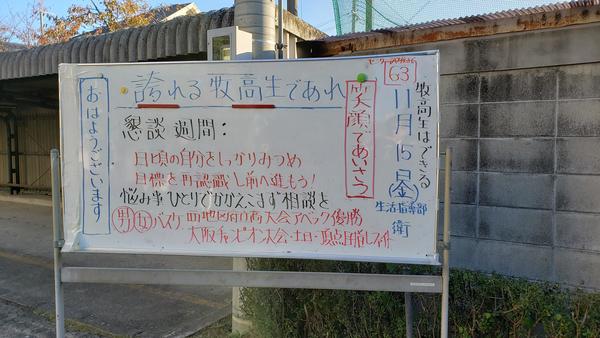 おはようございます
誇れる牧高生であれ
笑顔であいさつ
63
牧高生はできる
11月15日(金)
生活指導部
衛
懇談週間:
日頃の自分をしっかりみつめ
目標を再認識し前へ進もう!
悩み事ひとりでかかえこまず相談を
男女バスケ 四地区市高大会アベック優勝
大阪チャンピオン大会・土日・頂点目指しファイト